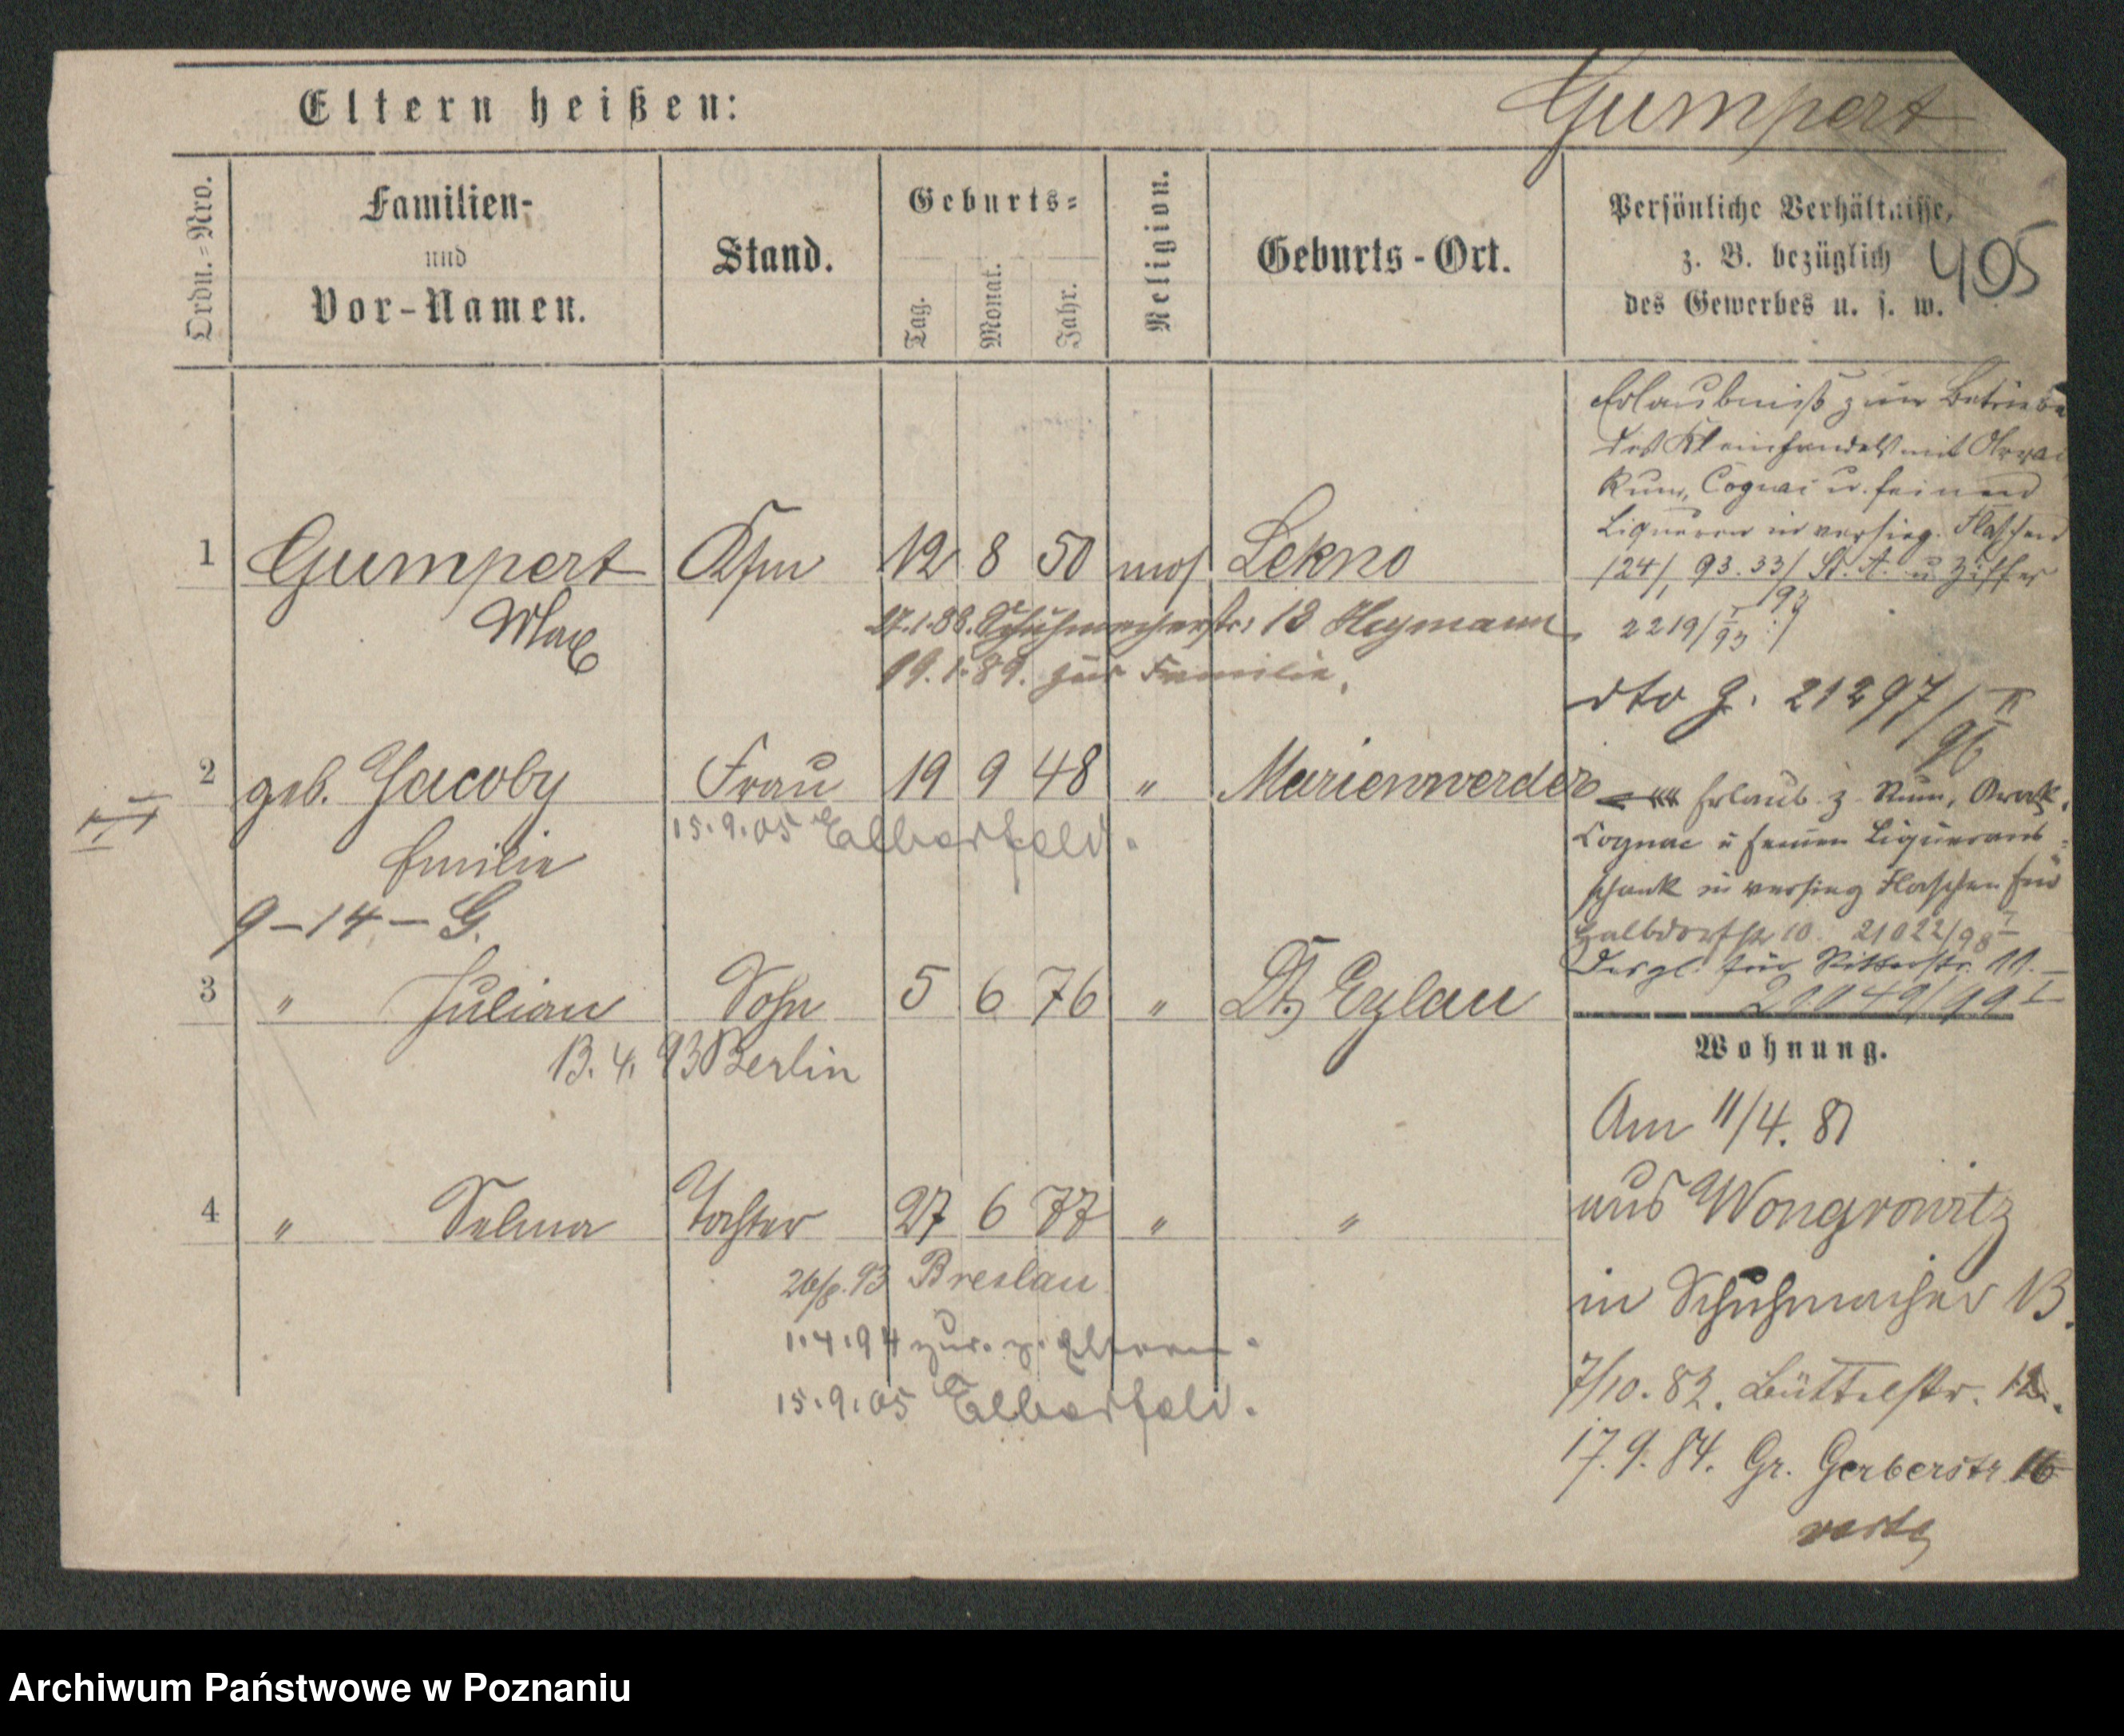 Gumpert
Eltern heißen:
405
Ordn.-Nro.
Familien-
und
Vor-Namen.
Stand.
Geburts-
Tag.
Monat.
Jahr.
Religion.
Geburts-Ort.
Persönliche Verhältnisse,
z. B. bezüglich
des Gewerbes u. s. w.
1 Gumpert Kfm 12 8 50 mos Lekno
Max
27.1.88. Schuhmacherstr: 13 Heymann
19.1.89. zur Familie.
2 geb. Jacoby Frau 19 9 48 " Marienwerder
15.9.05 Elberfeld.
Emilie
9-14-G.
II
3 " Julian Sohn 5 6 76 " Dt. Eylau
13.4.93 Berlin
4 " Selma Tochter 27 6 77 " "
Breslau
1.4.94 zur. z. Eltern.
15.9.05 Elberfeld.
Erlaubniß zum Betriebe
des Kleinhandels mit Arrac
Rum, Cognac u. feinen
Liqueren in versieg. Flaschen
124/ 93. 33/ St. A. u Ziffer
93
2219/I 93
dto J. 21297/II
96
Erlaub. z. Rum, Arrak,
Cognac u feinen Liqueraus-
schank in versieg Flaschen für
Halbdorfstr 10. 21022/98 I
Desgl. für Ritterstr. 11.
21049/99 I
Wohnung.
Am 11/4. 81
aus Wongrowitz
in Schuhmacher 13.
7/10. 82. Büttelstr. 12.
17.9.84. Gr. Gerberstr 16
verte
Archiwum Państwowe w Poznaniu